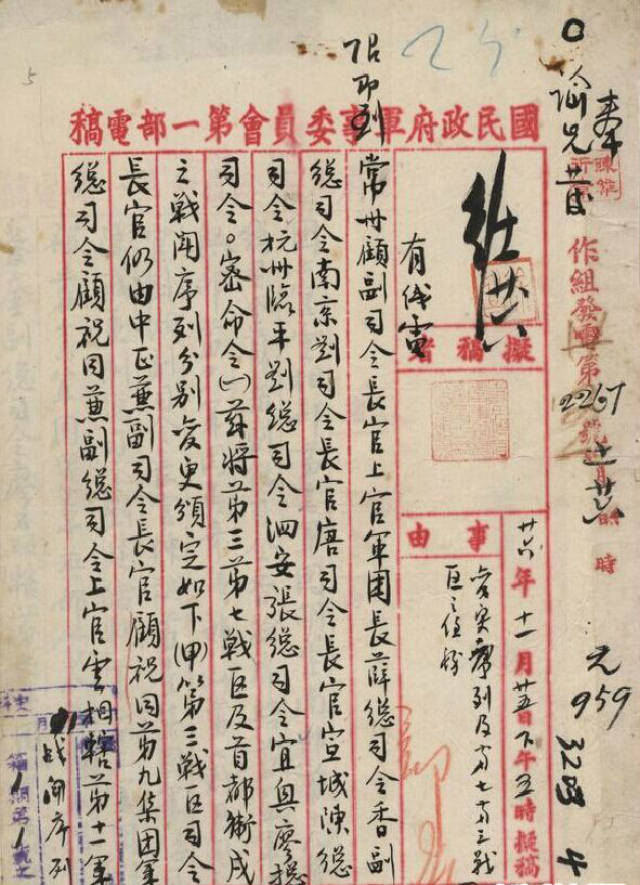 國民政府軍事委員會第一部電稿
作組發電第2267號
時
廿六年十一月廿五日下午五時擬稿
959
擬稿者
事由
變更序列及第七第三戰
區之任務
有線電
即到
常州顧副司令長官上官軍團長薛總司令香副
總司令南京劉司令長官唐司令長官宣城陳總
司令杭州臨平劉總司令泗安張總司令宜興廖總
司令。密命令(一)茲將第三第七戰區及首都衛戍
之戰鬥序列分別變更頒定如下(甲)第三戰區司令
長官仍由中正兼副司令長官顧祝同第九集團軍
總司令顧祝同兼副總司令上官雲相轄第十一軍
戰鬥序列